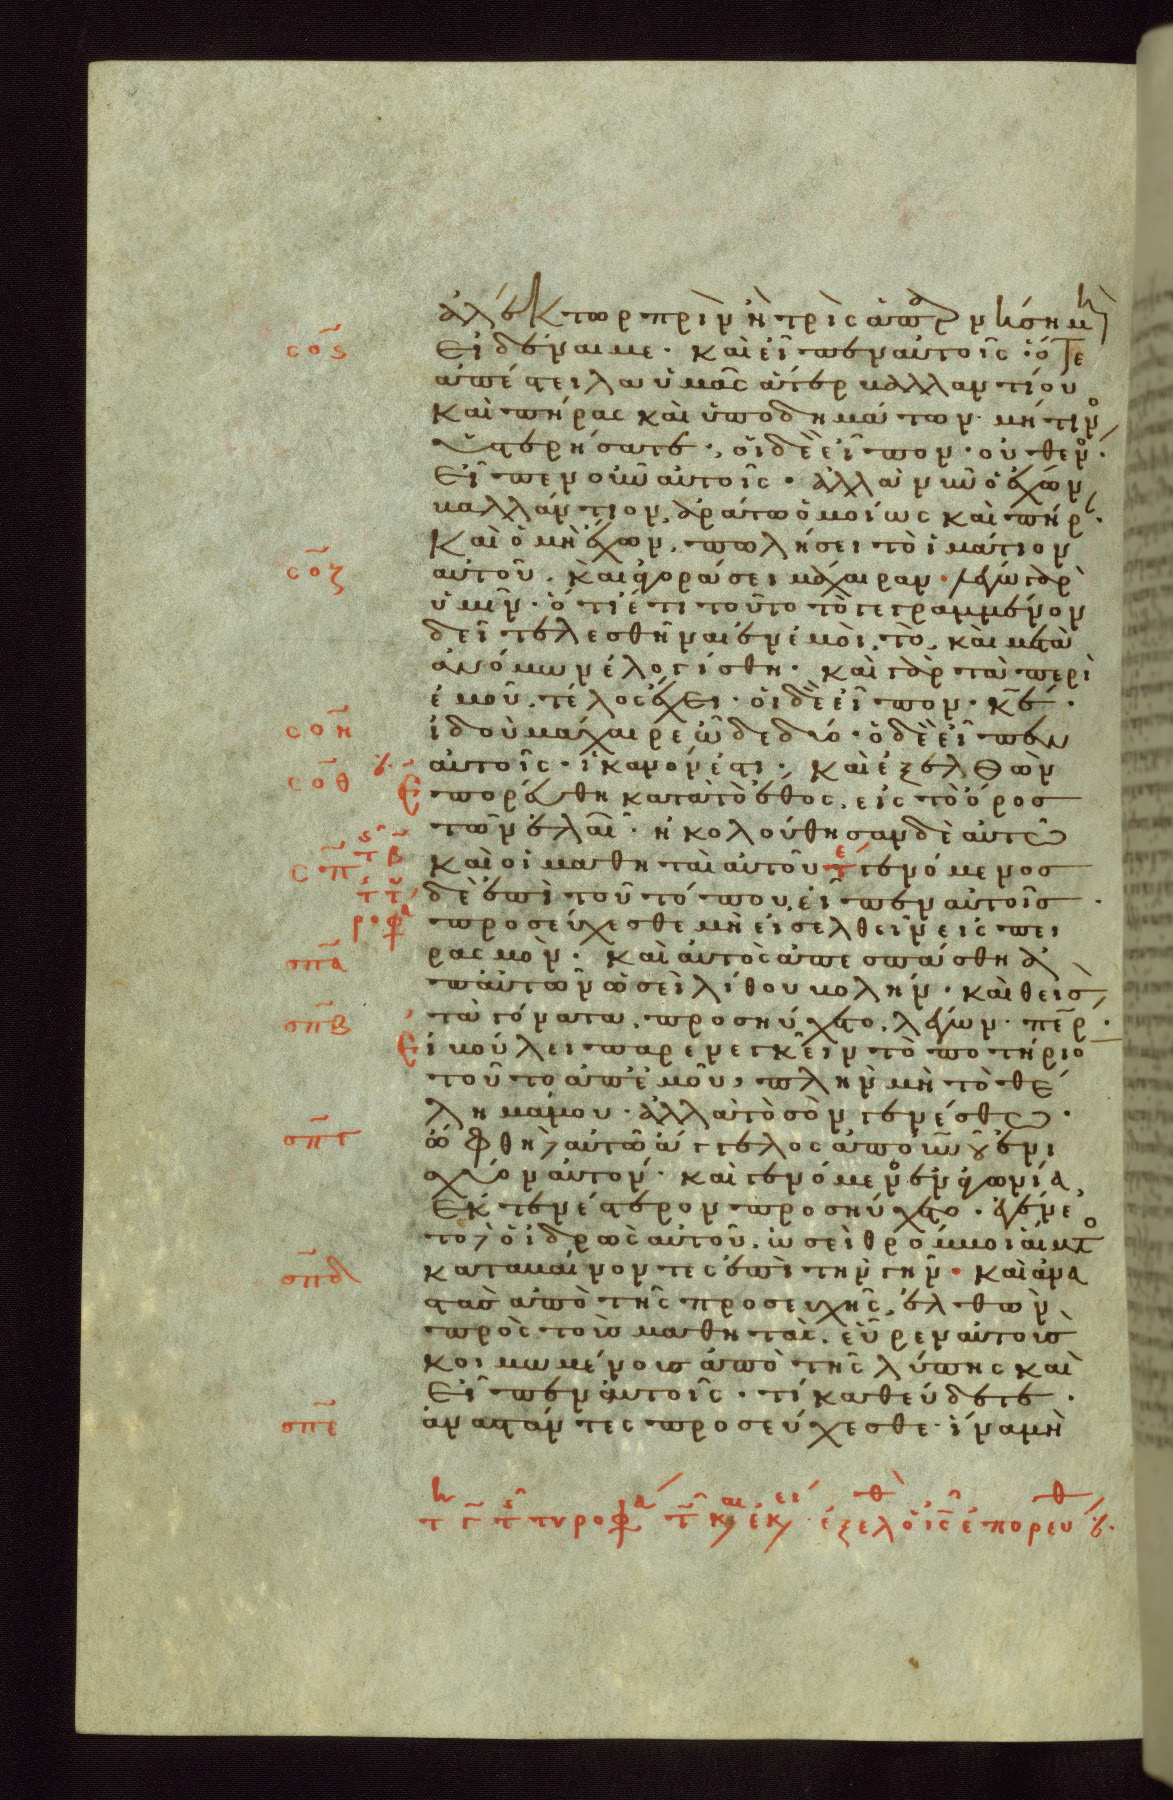 ἀλέκτωρ πρὶν ἢ τρὶς ἀπαρνήσῃ μὴ
σος εἰδέναι με· καὶ εἶπεν αὐτοῖς· ὅτε
ἀπέστειλα ὑμᾶς ἄτερ βαλλαντίου
καὶ πήρας καὶ ὑποδημάτων· μή τινος
ὑστερήσατε· οἱ δὲ εἶπον· οὐθενός·
εἶπεν οὖν αὐτοῖς· ἀλλὰ νῦν ὁ ἔχων
βαλλάντιον, ἀράτω ὁμοίως καὶ πήραν·
καὶ ὁ μὴ ἔχων, πωλήσει τὸ ἱμάτιον
σοζ αὐτοῦ, καὶ ἀγοράσει μάχαιραν· λέγω γὰρ
ὑμῖν· ὅτι ἔτι τοῦτο τὸ γεγραμμένον
δεῖ τελεσθῆναι ἐν ἐμοὶ, τὸ, καὶ μετὰ
ἀνόμων ἐλογίσθη· καὶ γὰρ τὰ περὶ
ἐμοῦ, τέλος ἔχει· οἱ δὲ εἶπον· κε·
σοη ἰδοὺ μάχαιρε ὧδε δύο· ὁ δὲ εἶπεν
σοθ αὐτοῖς· ἱκανόν ἐστι· καὶ ἐξελθὼν
ἐπορεύθη κατὰ τὸ ἔθος, εἰς τὸ ὄρος
τῶν ἐλαιῶν· ἠκολούθησαν δὲ αὐτῶ
σπ καὶ οἱ μαθηταὶ αὐτοῦ γενόμενος
δὲ ἐπὶ τοῦ τόπου, εἶπεν αὐτοῖς·
προσεύχεσθε μὴ εἰσελθεῖν εἰς πει
σπα ρασμόν· καὶ αὐτὸς ἀπεσπάσθη ἀ
π αὐτῶν ὡσεὶ λίθου βολήν· καὶ θεὶς
σπβ τὰ γόνατα, προσηύχετο, λέγων· περ·
εἰ βούλει παρενεγκεῖν τὸ ποτήριον
τοῦτο ἀπ ἐμοῦ, πλὴν μὴ τὸ θέ
λημά μου· ἀλλὰ τὸ σὸν γενέσθω·
σπγ ὤφθη αὐτῶ ἄγγελος ἀπ οὐνοῦ ἐνι
σχύων αὐτόν· καὶ γενόμενος ἐν ἀγωνία
ἐκτενέστερον προσηύχετο· ἐγένε
το ὁ ἱδρὼς αὐτοῦ, ὡσεὶ θρόμβοι αἵματος
σπδ καταβαίνοντες ἐπὶ τὴν γῆν· καὶ ἀνα
στὰς ἀπὸ τῆς προσευχῆς, ἐλθὼν
πρὸς τοὺς μαθητὰς, εὗρεν αὐτοὺς
κοιμωμένους ἀπὸ τῆς λύπης καὶ
εἶπεν αὐτοῖς· τί καθεύδετε·
σπε ἀναστάντες προσεύχεσθε· ἵνα μὴ